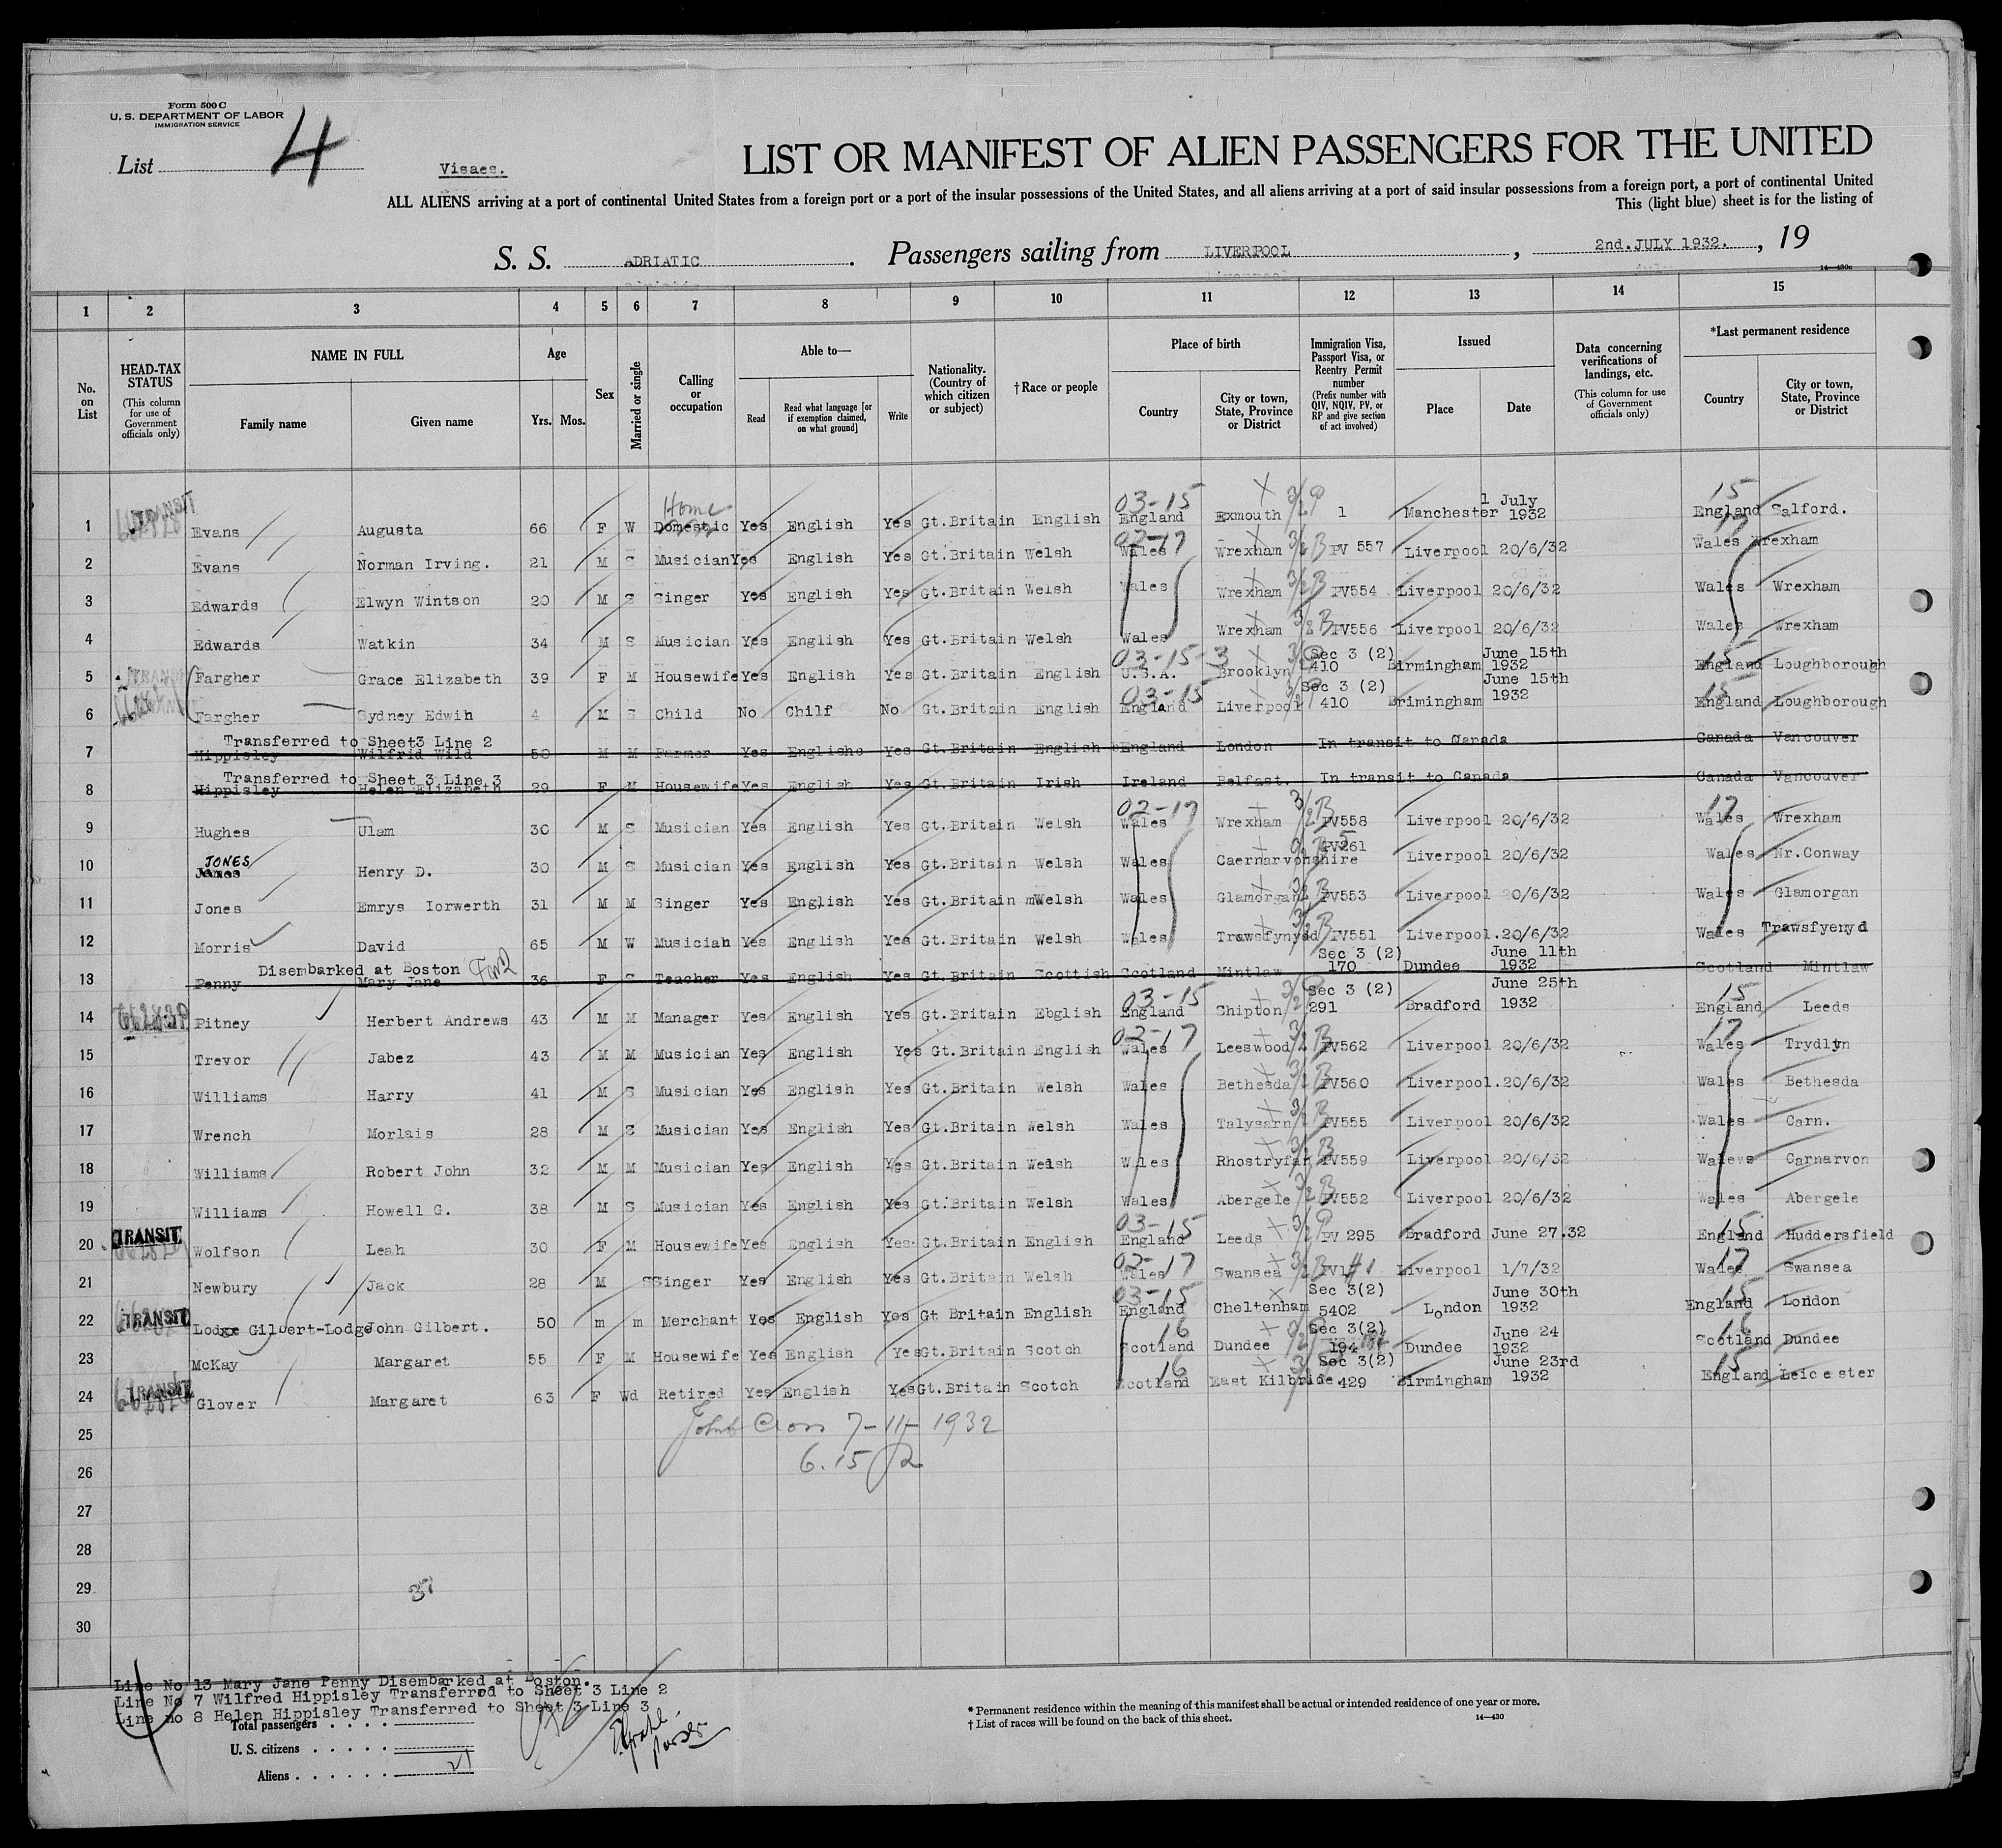 Form 500 C
U. S. DEPARTMENT OF LABOR
IMMIGRATION SERVICE
List 4
Visaes.
LIST OR MANIFEST OF ALIEN PASSENGERS FOR THE UNITED
ALL ALIENS arriving at a port of continental United States from a foreign port or a port of the insular possessions of the United States, and all aliens arriving at a port of said insular possessions from a foreign port, a port of continental United
This (light blue) sheet is for the listing of
S. S. ADRIATIC. Passengers sailing from LIVERPOOL, 2nd.JULY 1932., 19
14—430c
1 2 3 4 5 6 7 8 9 10 11 12 13 14 15
No. on List
HEAD-TAX STATUS (This column for use of Government officials only)
NAME IN FULL
Family name Given name
Age
Yrs. Mos.
Sex
Married or single
Calling or occupation
Able to—
Read Read what language [or if exemption claimed, on what ground] Write
Nationality. (Country of which citizen or subject)
†Race or people
Place of birth
Country City or town, State, Province or District
Immigration Visa, Passport Visa, or Reentry Permit number (Prefix number with QIV, NQIV, PV, or RP and give section of act involved)
Issued
Place Date
Data concerning verifications of landings, etc. (This column for use of Government officials only)
*Last permanent residence
Country City or town, State, Province or District
Home 03-15 1 July 15
1 TRANSIT Evans Augusta 66 F W Domestic Yes English Yes Gt.Britain English England Exmouth 1 Manchester 1932 England Salford.
02-17 17
2 Evans Norman Irving. 21 M S Musician Yes English Yes Gt.Britain Welsh Wales Wrexham PV 557 Liverpool 20/6/32 Wales Wrexham
3 Edwards Elwyn Wintson 20 M S Singer Yes English Yes Gt.Britain Welsh Wales Wrexham PV554 Liverpool 20/6/32 Wales Wrexham
4 Edwards Watkin 34 M S Musician Yes English Yes Gt.Britain Welsh Wales Wrexham PV556 Liverpool 20/6/32 Wales Wrexham
03-15-3 Sec 3 (2) June 15th 15
5 Fargher Grace Elizabeth 39 F M Housewife Yes English Yes Gt.Britain English U.S.A. Brooklyn 410 Birmingham 1932 England Loughborough
03-15 Sec 3 (2) June 15th 15
6 Fargher Sydney Edwin 4 M S Child No Chilf No Gt.Britain English England Liverpool 410 Brimingham 1932 England Loughborough
Transferred to Sheet3 Line 2
7 Hippisley Wilfrid Wild 50 M M Farmer Yes Englishe Yes Gt.Britain English England London In transit to Canada Canada Vancouver
Transferred to Sheet 3 Line 3
8 Hippisley Helen Elizabeth 29 F M Housewife Yes English Yes Gt.Britain Irish Ireland Belfast. In transit to Canada Canada Vancouver
02-17 17
9 Hughes Ulam 30 M S Musician Yes English Yes Gt.Britain Welsh Wales Wrexham PV558 Liverpool 20/6/32 Wales Wrexham
JONES 5
10 Henry D. 30 M S Musician Yes English Yes Gt.Britain Welsh Wales Caernarvonshire PV261 Liverpool 20/6/32 Wales Nr.Conway
11 Jones Emrys Iorwerth 31 M M Singer Yes English Yes Gt.Britain mWelsh Wales Glamorgan PV553 Liverpool 20/6/32 Wales Glamorgan
12 Morris David 65 M W Musician Yes English Yes Gt.Britain Welsh Wales Trawsfynydd PV551 Liverpool.20/6/32 Wales Trawsfyenyd
Disembarked at Boston Sec 3 (2) June 11th
13 Penny Mary Jane 36 F S Teacher Yes English Yes Gt.Britain Scottish Scotland Mintlaw 170 Dundee 1932 Scotland Mintlaw
03-15 Sec 3 (2) June 25th 15
14 Pitney Herbert Andrews 43 M M Manager Yes English Yes Gt.Britain Ebglish England Shipton 291 Bradford 1932 England Leeds
02-17 17
15 Trevor Jabez 43 M M Musician Yes English Yes Gt.Britain English Wales Leeswood PV562 Liverpool 20/6/32 Wales Trydlyn
16 Williams Harry 41 M S Musician Yes English Yes Gt.Britain Welsh Wales Bethesda PV560 Liverpool.20/6/32 Wales Bethesda
17 Wrench Morlais 28 M S Musician Yes English Yes Gt.Britain Welsh Wales Talysarn PV555 Liverpool 20/6/32 Wales Carn.
18 Williams Robert John 32 M M Musician Yes English Yes Gt.Britain Welsh Wales Rhostryfan PV559 Liverpool 20/6/32 Walews Carnarvon
19 Williams Howell G. 38 M S Musician Yes English Yes Gt.Britain Welsh Wales Abergele PV552 Liverpool 20/6/32 Wales Abergele
03-15 15
20 TRANSIT Wolfson Leah 30 F M Housewife Yes English Yes Gt.Britain English England Leeds PV 295 Bradford June 27.32 England Huddersfield
02-17 17
21 Newbury Jack 28 M S Singer Yes English Yes Gt.Britain Welsh Wales Swansea PV1 #1 Liverpool 1/7/32 Wales Swansea
03-15 Sec 3(2) June 30th 15
22 TRANSIT Lodge Gilbert-Lodge John Gilbert. 50 m m Merchant Yes English Yes Gt Britain English England Cheltenham 5402 London 1932 England London
16 Sec 3(2) June 24 16
23 McKay Margaret 55 F M Housewife Yes English Yes Gt.Britain Scotch Scotland Dundee 194 Dundee 1932 Scotland Dundee
16 Sec 3(2) June 23rd 15
24 TRANSIT Glover Margaret 63 F Wd Retired Yes English Yes Gt.Britain Scotch Scotland East Kilbride 429 Birmingham 1932 England Leicester
25 Cross 7-11-1932
26 6.15
27
28
29
30
Line No 13 Mary Jane Penny Disembarked at Boston.
Line No 7 Wilfred Hippisley Transferred to Sheet 3 Line 2
Line no 8 Helen Hippisley Transferred to Sheet 3 Line 3
Total passengers
U. S. citizens
Aliens 21
Purser
* Permanent residence within the meaning of this manifest shall be actual or intended residence of one year or more.
† List of races will be found on the back of this sheet.
14—430